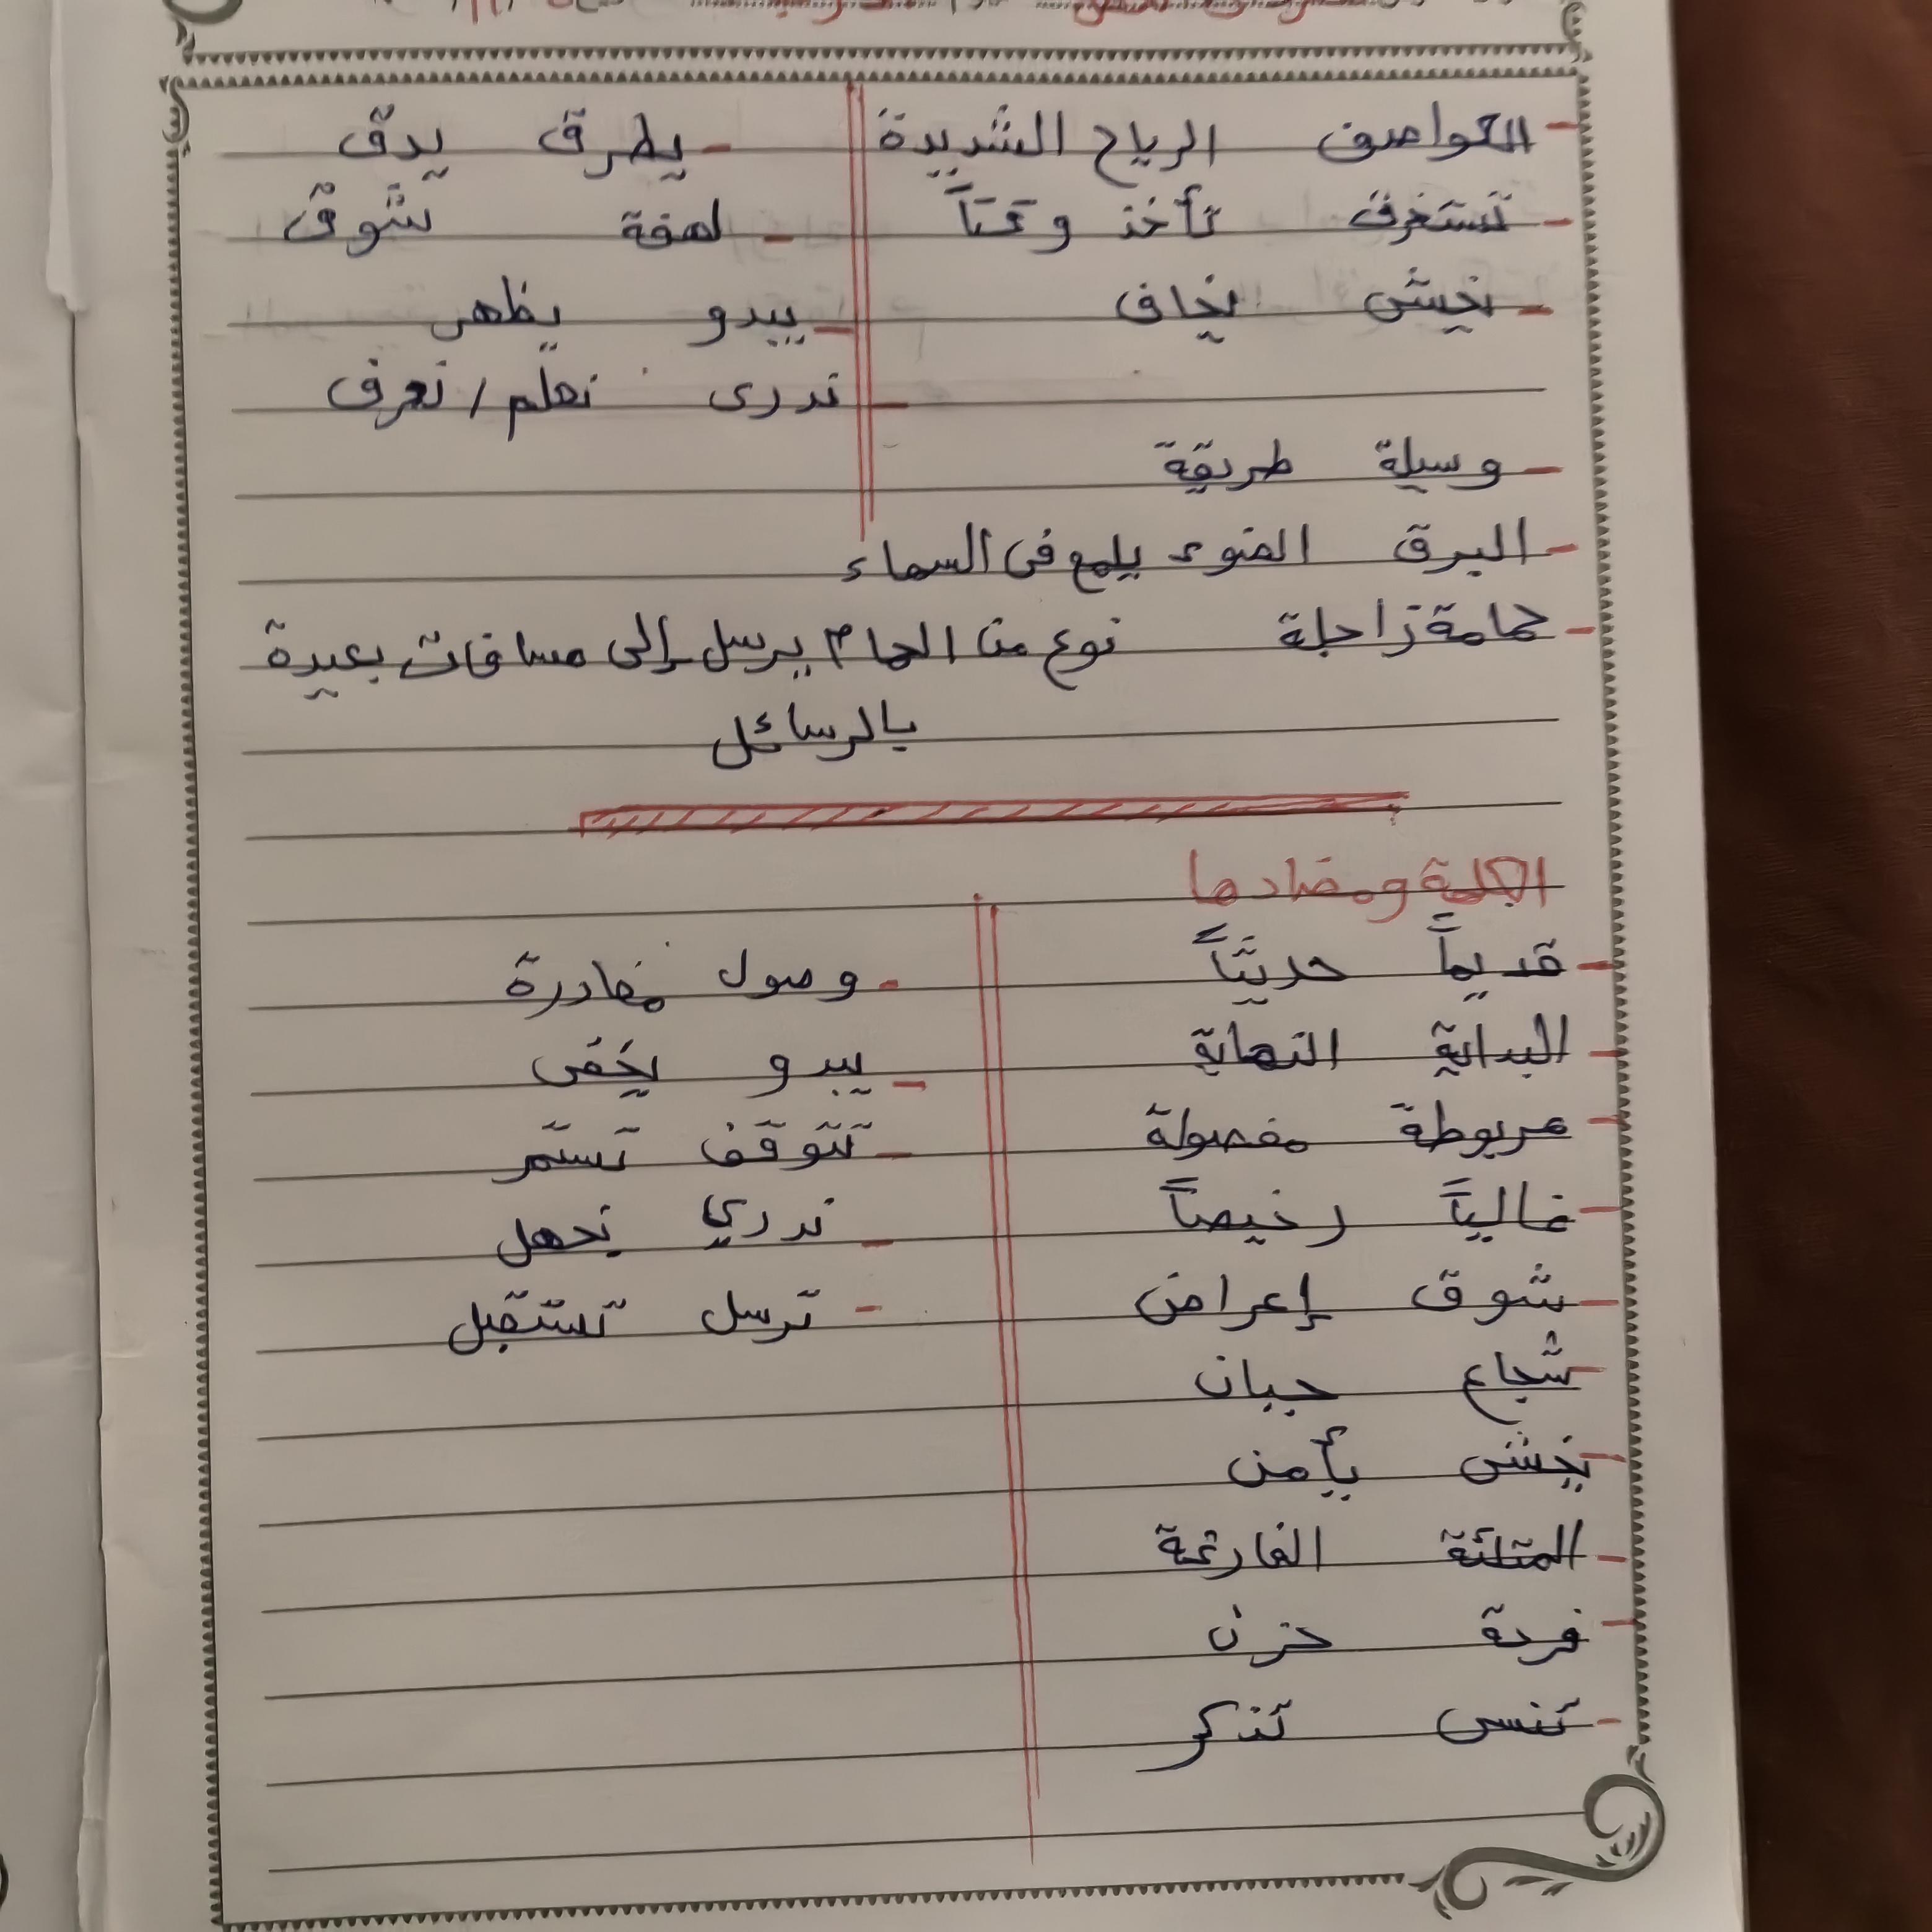 - العواصف الرياح الشديدة - يطرق يدق
- تستغرق تأخذ وقتاً - لهفة شوق
- يخشى يخاف - يبدو يظهر
- ندرى نعلم / نعرف
- وسيلة طريقة
- البرق الضوء يلمع فى السماء
- حمامة زاجلة نوع من الحمام يرسل إلى مسافات بعيدة
بالرسائل
الكلمة ومضادها
- قديماً حديثاً - وصول مغادرة
- البداية النهاية - يبدو يخفى
- مربوطة مفصولة - تتوقف تستمر
- غالياً رخيصاً - ندري نجهل
- شوق إعراض - ترسل تستقبل
- شجاع جبان
- يخشى يأمن
- الممتلئة الفارغة
- فرحة حزن
- تنسى تذكر